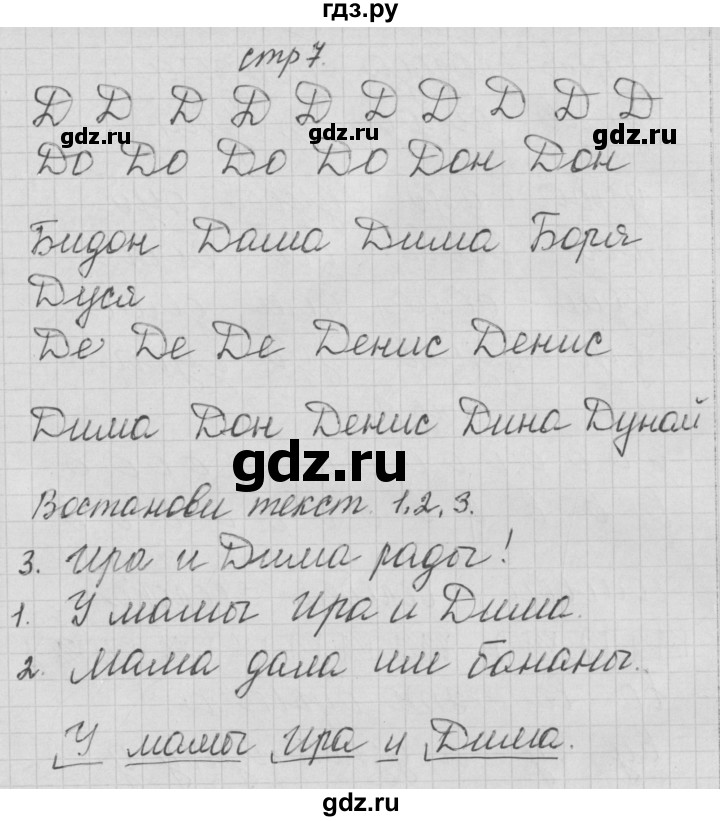 гдз.ру
стр 7.
Д Д Д Д Д Д Д Д Д Д
gdz.ru gdz.ru gdz.ru
До До До До Дон Дон
Бидон Даша Дима Боря
Дуся
gdz.ru gdz.ru
Де Де Де Денис Денис
Дима Дон Денис Дина Дунай
gdz.ru
Востанови текст 1,2,3.
3. Ира и Дима рады!
gdz.ru gdz.ru
1. У мамы Ира и Дима.
2. Мама дала им бананы.
У мамы Ира и Дима.
gdz.ru gdz.ru
gdz.ru